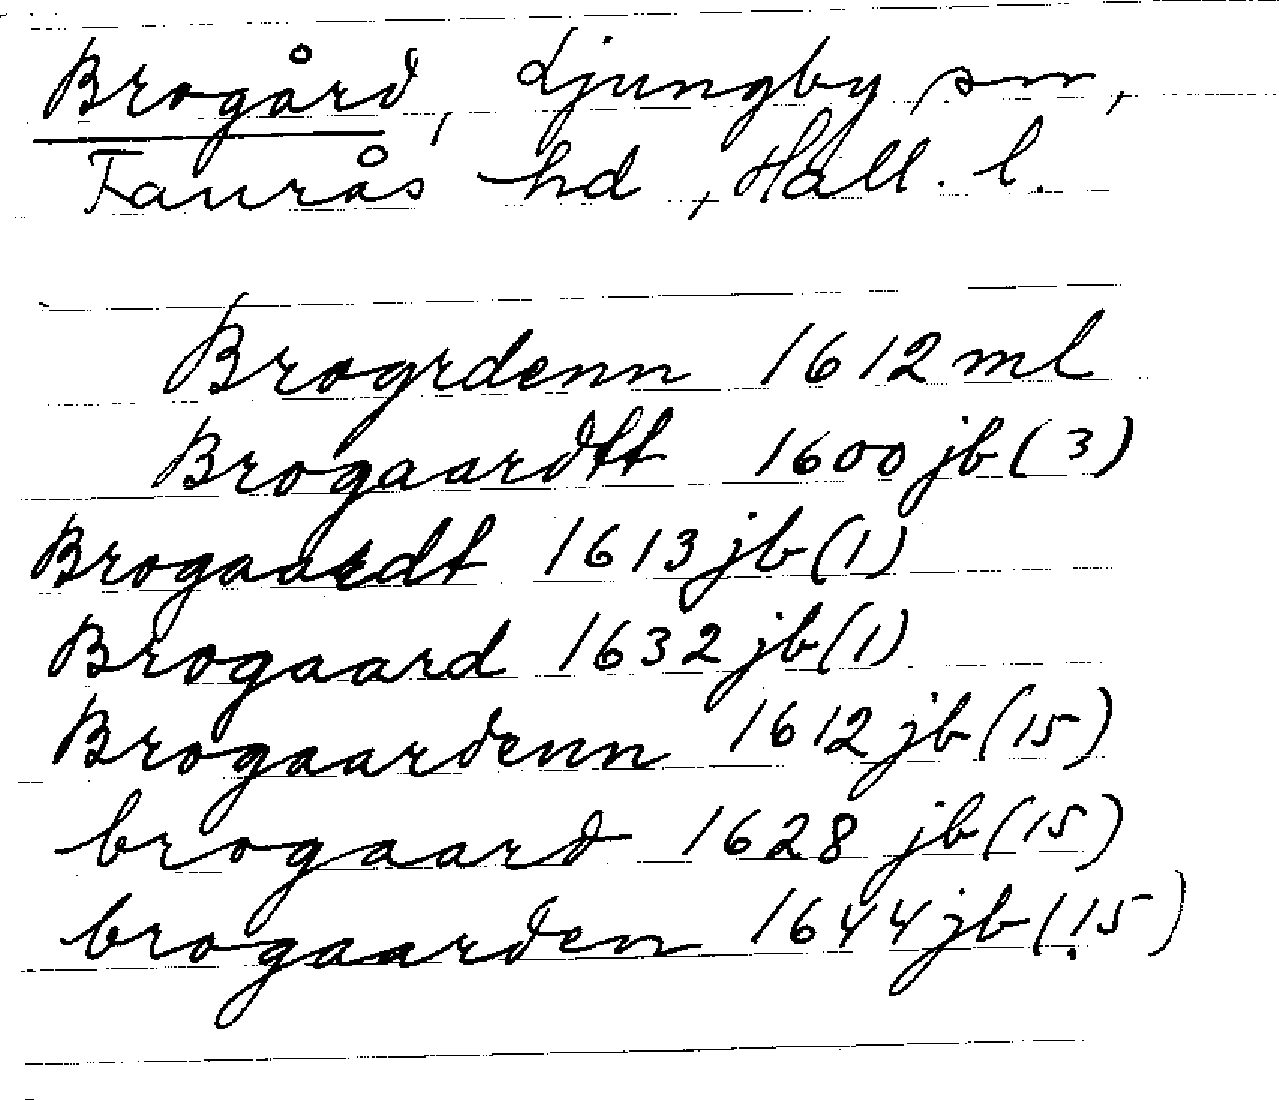 Brogård, Ljungby sn,
Faurås hd, Hall. l.
Brogrdenn 1612 ml
Brogaardtt 1600 jb (3)
Brogaardt 1613 jb (1)
Brogaard 1632 jb (1)
Brogaardenn 1612 jb (15)
brogaard 1628 jb (15)
brogaarden 1644 jb (15)